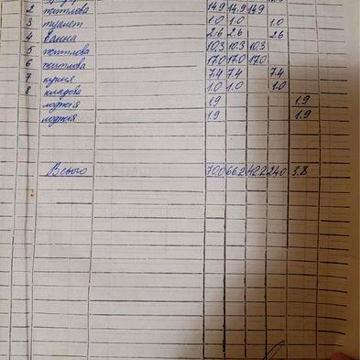 2 житлова 14.9 14.9 14.9
3 туалет 1.0 1.0 1.0
4 ванна 2.6 2.6 2.6
5 житлова 10.3 10.3 10.3
6 житлова 17.0 17.0 17.0
7 кухня 7.4 7.4 7.4
8 кладова 1.0 1.0 1.0
лоджія 1.9 1.9
лоджія 1.9 1.9
Всього 70.0 66.2 42.2 24.0 3.8